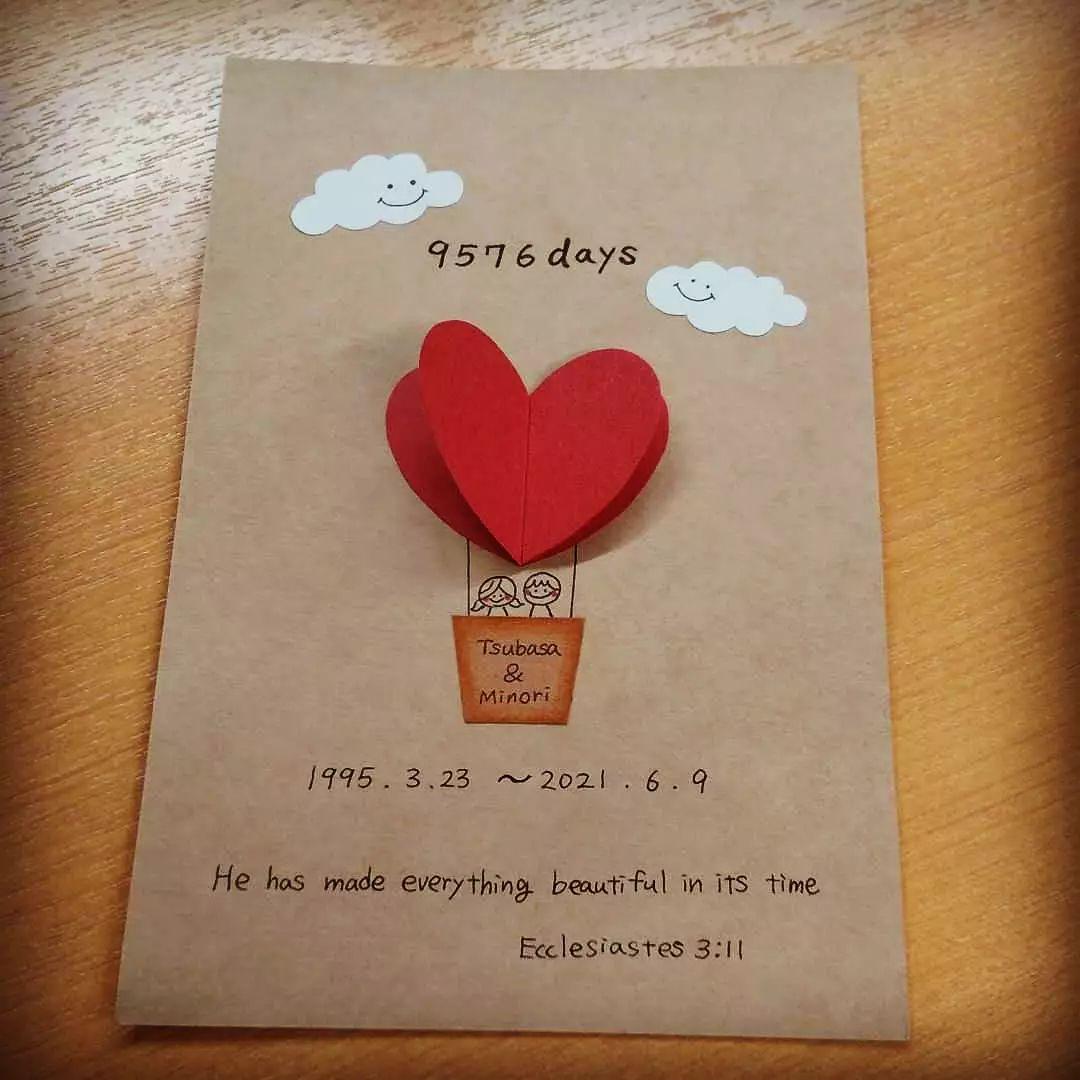 9576 days
Tsubasa
&
Minori
1995.3.23 ~2021.6.9
He has made everything beautiful in its time
Ecclesiastes 3:11